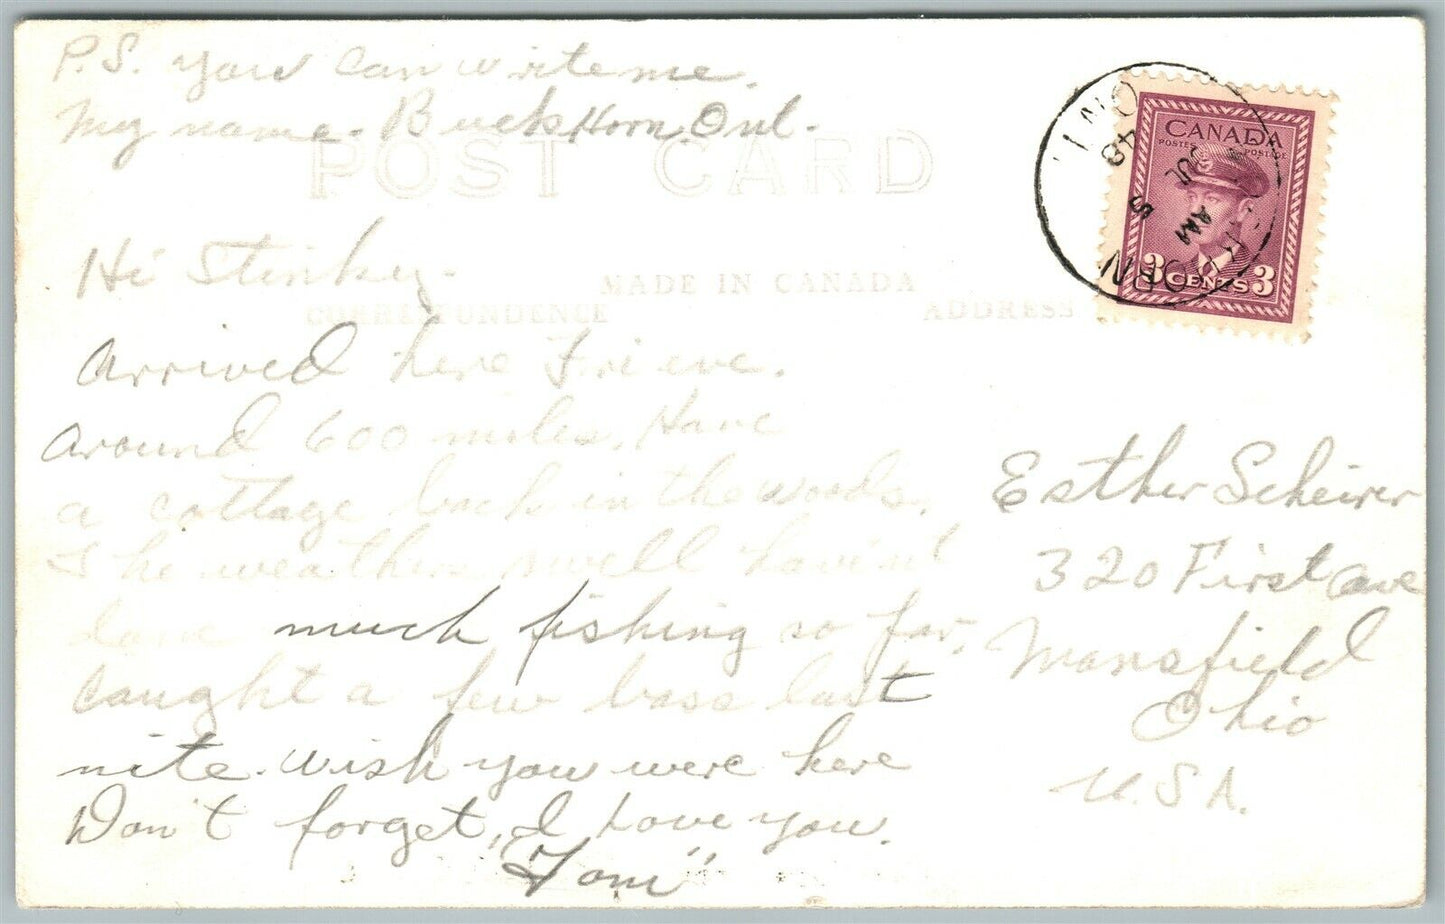 P.S. you can write me.
My name - Buckhorn, Ont.
POST CARD
Hi Stinky -
MADE IN CANADA
CORRESPONDENCE
ADDRESS
Arrived here Fri eve.
Around 600 miles. Have
a cottage back in the woods.
The weathers swell havin't
done much fishing so far,
caught a few bass last
nite. Wish you were here
Don't forget, I love you.
"Tom"
Esther Scheirer
320 First Ave
Mansfield
Ohio
U.S.A.
CANADA
POSTES POSTAGE
3 CENTS 3
ONT.
AM
JUL 5
48